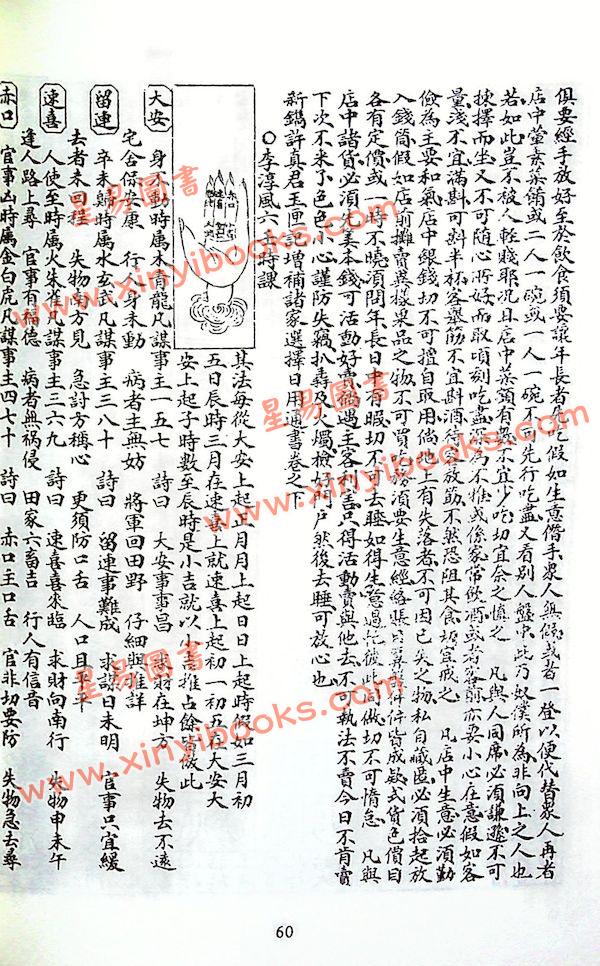 俱要經手放好至於飲食須要讓年長者先吃假如生意僭手眾人無暇或者一登以便代替眾人再者
店中葷素菜餚或二人一碗或一人一碗不可先行吃盡又看別人盤中此乃奴僕所為非向上之人也
若如此豈不被人輕賤耶况且店中菜頭有數不宜少吃切宜奈之慎之 凡與人同席必須謙遜不可
揀擇而坐又不可隨心所好而取頃刻吃盡為不雅或係家常飲酒或者客前亦要小心在意假如客
量淺不宜滿斟可斟半杯客舉筯不宜斟酒待客放筯不然恐阻其食切宜戒之 凡店中生意必須勤
儉為主要和氣店中銀錢切不可擅自取用倘地上有失落者不可因己失之物私自藏匿必須拾起放
入錢筒假如店前攤賣異樣果品之物不可買吃
各有定價或一時不曉須問年長日中有暇切不可去睡如得生意過忙彼此同做切不可惰怠 凡與
店中諸貨必須先美本錢可活動好賣倘遇主客可喜只得活動賣與他去不可執法不賣今日不肯賣
下次不來了色色小心謹防失竊扒彝及火燭檢好門戶然後去睡可放心也
新鐫許真君玉匣記增補諸家選擇日用通書卷之下
○李淳風六壬時課
其法每從大安上起正月月上起日日上起時假如三月初
五日辰時三月在速喜上就速喜上起初一初五在大安大
安上起子時數至辰時是小吉就以小吉推占餘皆倣此
大安 身不動時屬木青龍凡謀事主一五七 詩曰 大安事事昌 求財在坤方 失物去不遠
宅舍保安康 行人身未動 病者主無妨 將軍回田野 仔細與推詳
留連 卒未歸時屬水玄武凡謀事主二八十 詩曰 留連事難成 求謀日未明 官事只宜緩
去者未回程 失物南方見 急討方稱心 更須防口舌 人口且平平
速喜 人使至時屬火朱雀凡謀事主三六九 詩曰 速喜喜來臨 求財向南行 失物申未午
逢人路上尋 官事有福德 病者無禍侵 田家六畜吉 行人有信音
赤口 官事凶時屬金白虎凡謀事主四七十 詩曰 赤口主口舌 官非切要防 失物急去尋
星易圖書
www.xinyibooks.com
星易圖書
www.xinyibooks.com
星易圖書
www.xinyibooks.com
60